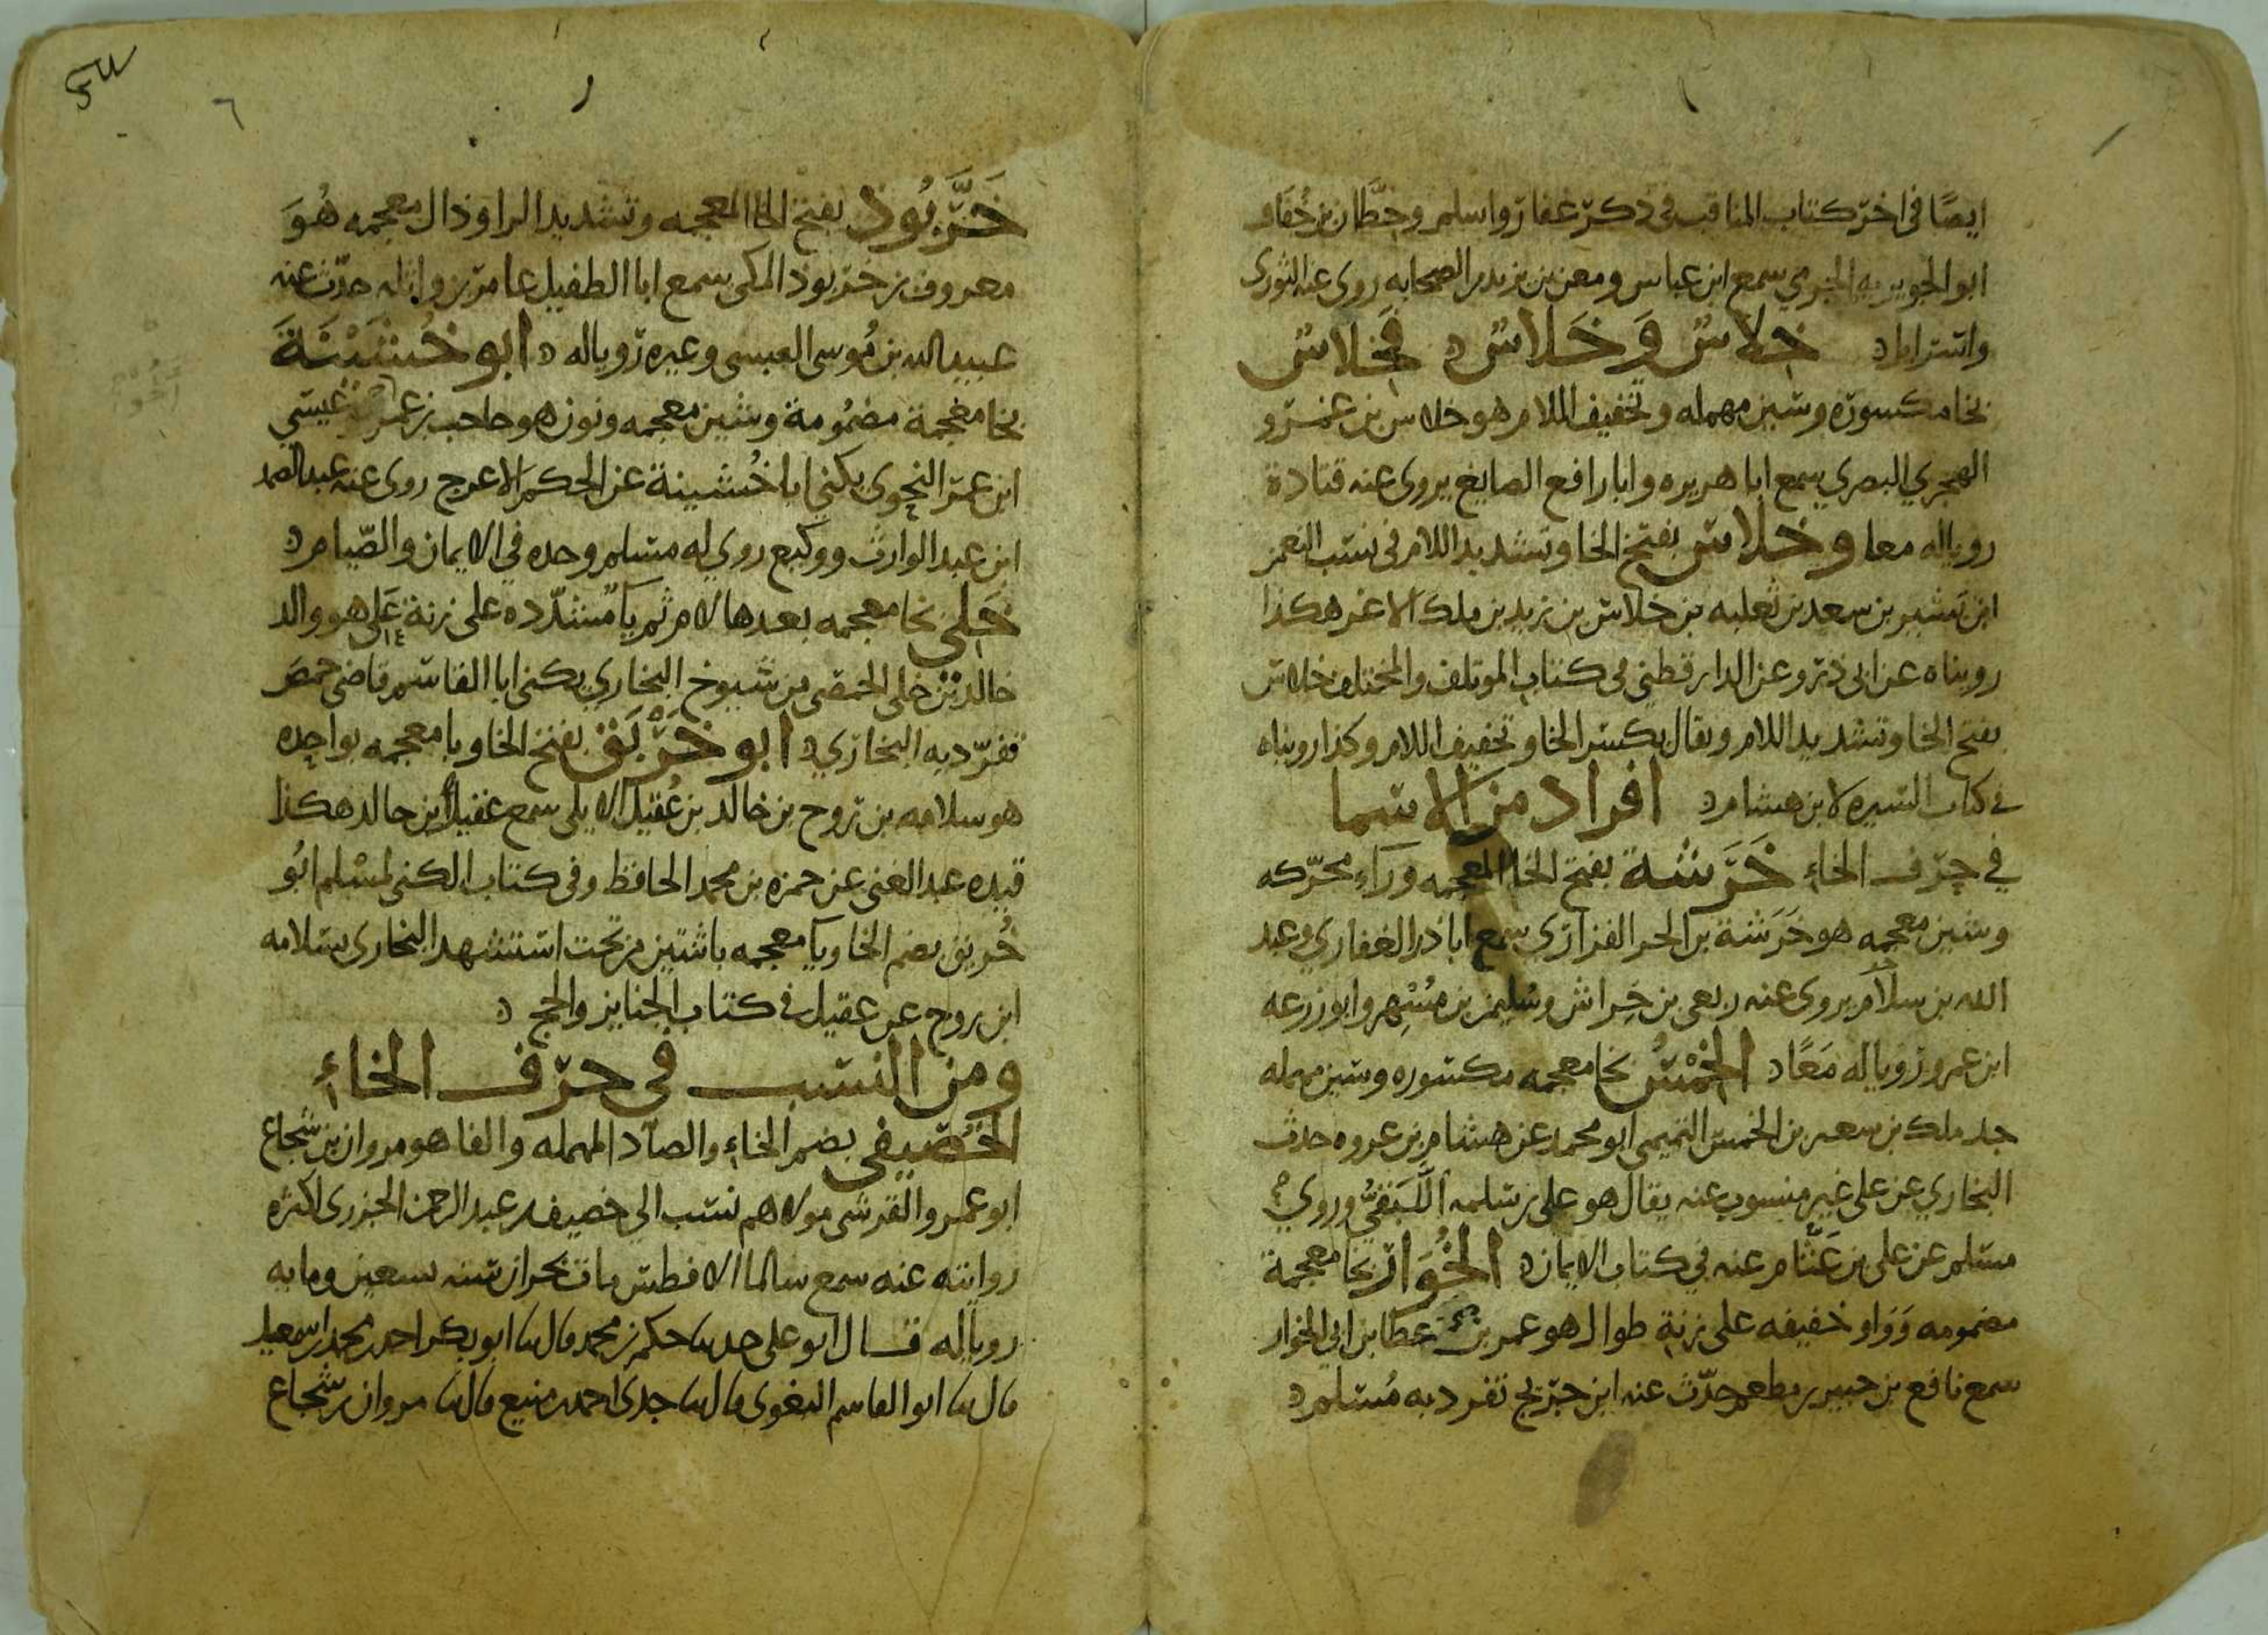 ايضا في اخر كتاب المناقب في ذكر غفار واسلم وحطان بن خفاف
ابو الجويرية الجرمي سمع ابن عباس ومعن بن يزيد من الصحابه روى عنه الثوري
واسرايل خِلاس وَخَلاس فَخِلاس
بخا مكسوره وسين مهمله وتخفيف اللام هو خلاس بن عمرو
الهجري البصري سمع ابا هريره وابا رافع الصايغ يروى عنه قتادة
رويا له معا وخلاس بفتح الخا وتشديد اللام في نسب النعمن
ابن بشير بن سعد بن ثعلبه بن خلاس بن زيد بن ملك الاغر هكذا
رويناه عن ابي ذر وعن الدارقطني في كتاب الموتلف والمختلف خلاس
بفتح الخا وتشديد اللام ويقال بكسر الخا وتخفيف اللام وكذا رويناه
في كتاب السيره لابن هشام افراد من الاسما
في حرف الخاء خَرَشة بفتح الخا المعجمه وراء محركه
وشين معجمه هو خَرَشة بن الحر الفزاري سمع ابا ذر الغفاري وعبد
الله بن سلام يروى عنه ربعي بن خِراش وسليمن بن مُسْهِر وابو زرعه
ابن عمرو رويا له مَعًا الخِمْسُ بخا معجمه مكسوره وسين مهمله
جد ملك بن سعير بن الخمس التميمي ابو محمد عن هشام بن عروه حدث
البخاري عن على غير منسوب عنه يقال هو على بن سلمه اللَّبَقيُّ وروي
مسلم عن على بن عَثَّام عنه في كتاب الايمان الخُوَار بخا معجمة
مضمومه وَوَاو خفيفه على زنة طوال هو عمر بن عطا بن ابي الخوار
سمع نافع بن جبير بن مطعم حدّث عنه ابن جريج تفرد به مُسلم
٦
خَرَّبُوذ بفتح الخا المعجمه وتشديد الرا وذال معجمه هُوَ
معروف بن خربوذ المكي سمع ابا الطفيل عامر بن واثله حدّث عنه
عبيد الله بن مُوسى العبسي وغيره رويا له ابو خُشَيْنَةَ
بخا معجمة مضمُومة وشين معجمه ونون هو حاجب بن عمر عيسي
ابن عمر النحوي يكني ابا خُشينة عن الحكم الاعرج روى عنه عبد الصمد
ابن عبد الوارث ووكيع روي له مسلم وحده في الايمان والصّيام
خَلي بخا معجمه بعدها لام ثم يا مشدّده على زنة عَلي هو والد
خالد بن خلي الحمصي من شيوخ البخاري يكنى ابا القاسم قاضي حمصَ
تفرّد به البخاري ابو خَرْبَق بفتح الخا وبا معجمه بواحده
هو سلامه بن روح بن خالد بن عُقيل الايلي سمع عقيل ابن خالد هكذا
قيده عبد الغني عن حمزه بن محمد الحافظ وفي كتاب الكني لمسْلم ابُو
خُريق بضم الخا ويا معجمه باثنتين من تحت استشهد البخاري بسلامه
ابن روح عن عقيل في كتاب الجنايز والحج
ومن النسب في حرف الخاء
الخُصَيفي بضم الخاء والصاد المهمله والفا هو مروان بن شجاع
ابو عمرو القرشي مولاهم نسب الي خصيف بن عبد الرحمن الجزري لكثره
روايته عنه سمع سالما الافطس مات بحران سنه تسعين ومايه
رويا له قال ابو على حدثنا حكم بن محمد قال نا ابو بكر احمد بن محمد بن اسمعيل
قال نا ابو القاسم البغوى قال نا جدى احمد بن منيع قال نا مروان بن شجاع